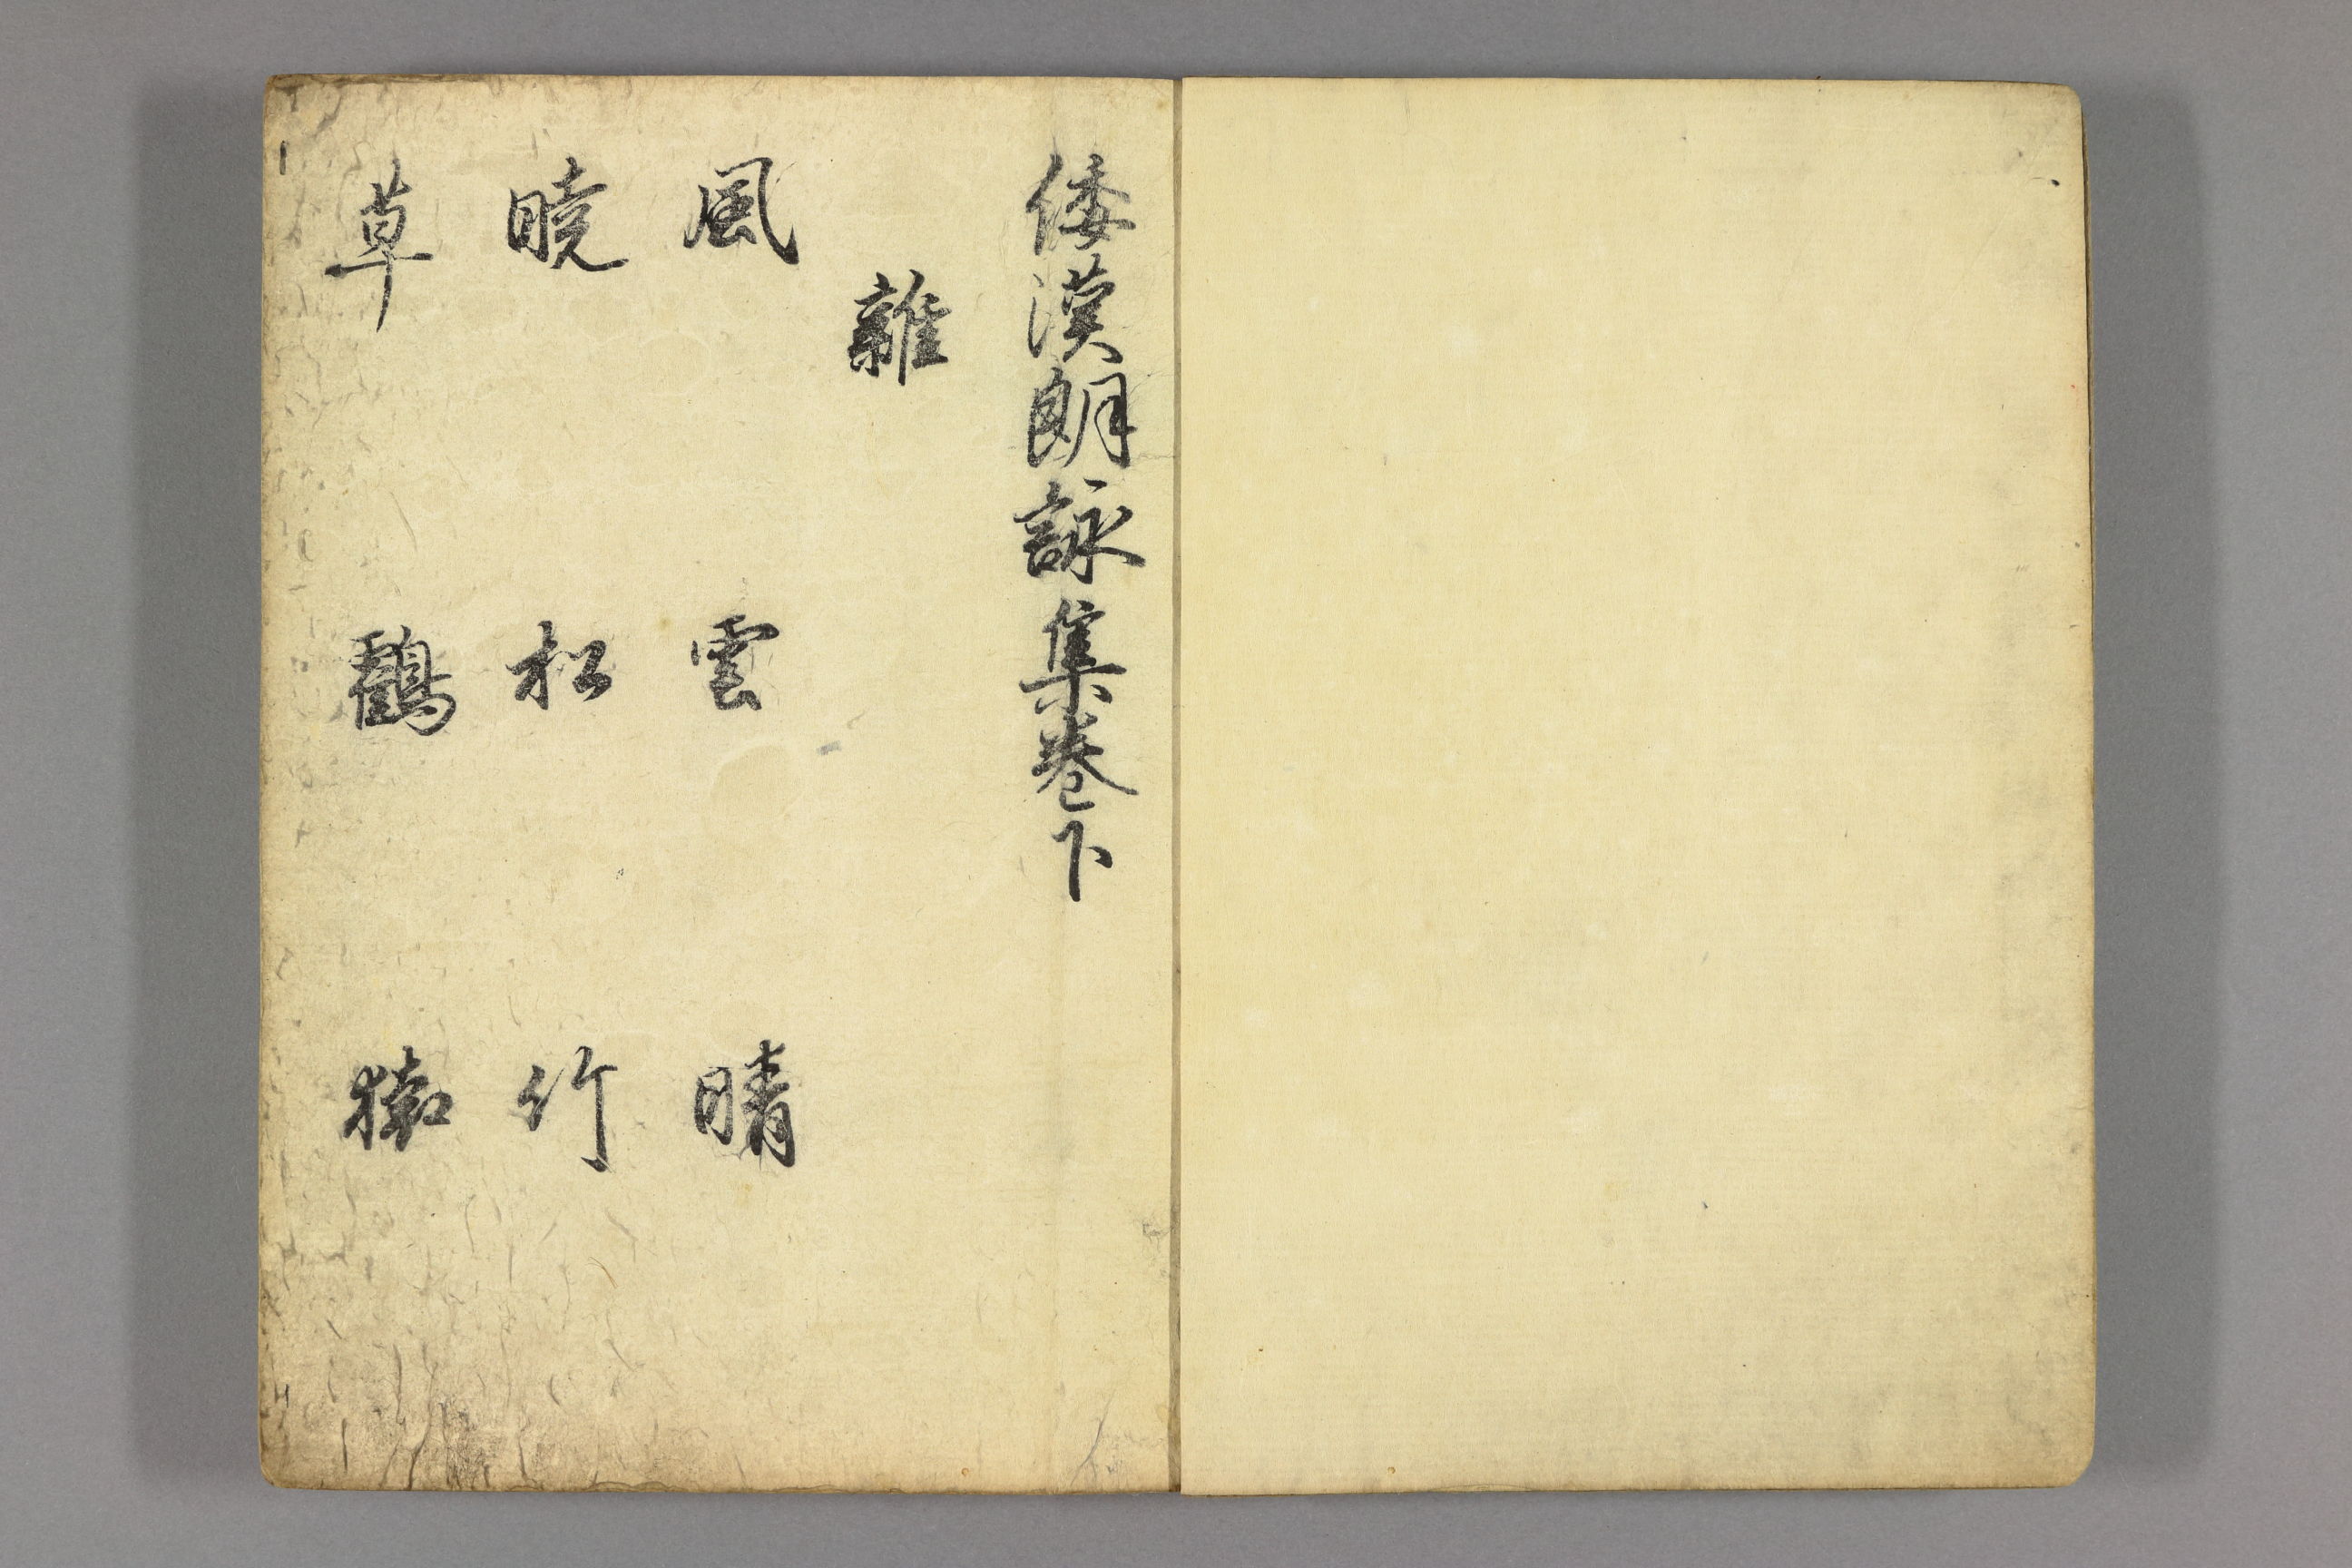 倭漢朗詠集巻下
雜
風 雲 晴
暁 松 竹
草 鶴 猿